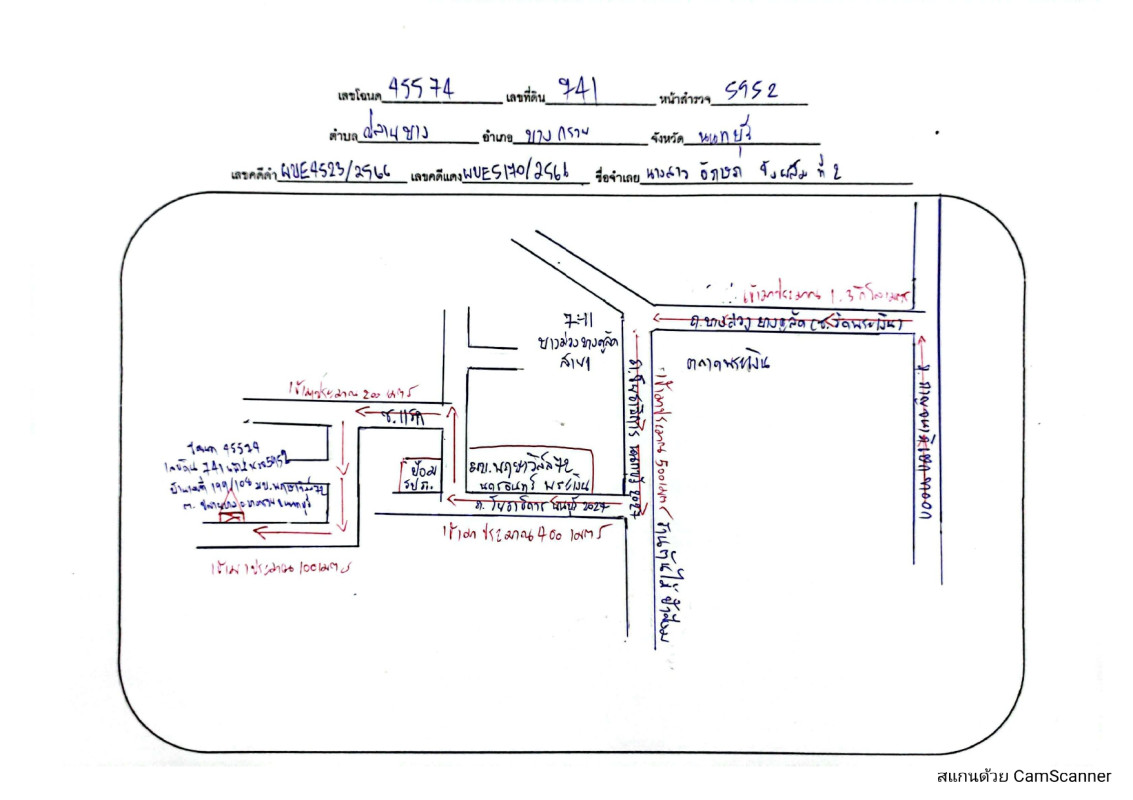 เลขโฉนด 45574 เลขที่ดิน 741 หน้าสำรวจ 5952
ตำบล ปลายบาง อำเภอ บางกรวย จังหวัด นนทบุรี
เลขคดีดำ ผบE4523/2566 เลขคดีแดง ผบE5170/2566 ชื่อจำเลย นางสาว ที่ 2
เข้ามาประมาณ 1.3 กิโลเมตร
ถ.บางม่วง บางคูลัด (ซ.วัดพระเงิน)
7-11
บางม่วง บางคูลัด
สาย 1
ตลาดพระเงิน
ถ. กาญจนาภิเษก ขาออก
เข้ามาประมาณ 500 เมตร
นนทบุรี 2027
ร้านต้นไม้
เข้ามาประมาณ 200 เมตร
ซ.แรก
ป้อม
รปภ.
มบ.พฤกษาวิลล์ 72
นครอินทร์ พระเงิน
ถ. โยธาธิการ นนทบุรี 2027
เข้ามาประมาณ 400 เมตร
โฉนด 45574
เลขที่ดิน 741 5952
บ้านเลขที่ 199/108 มบ.พฤกษาวิลล์ 72
ต. ปลายบาง อ.บางกรวย จ.นนทบุรี
เข้ามาประมาณ 100 เมตร
สแกนด้วย CamScanner